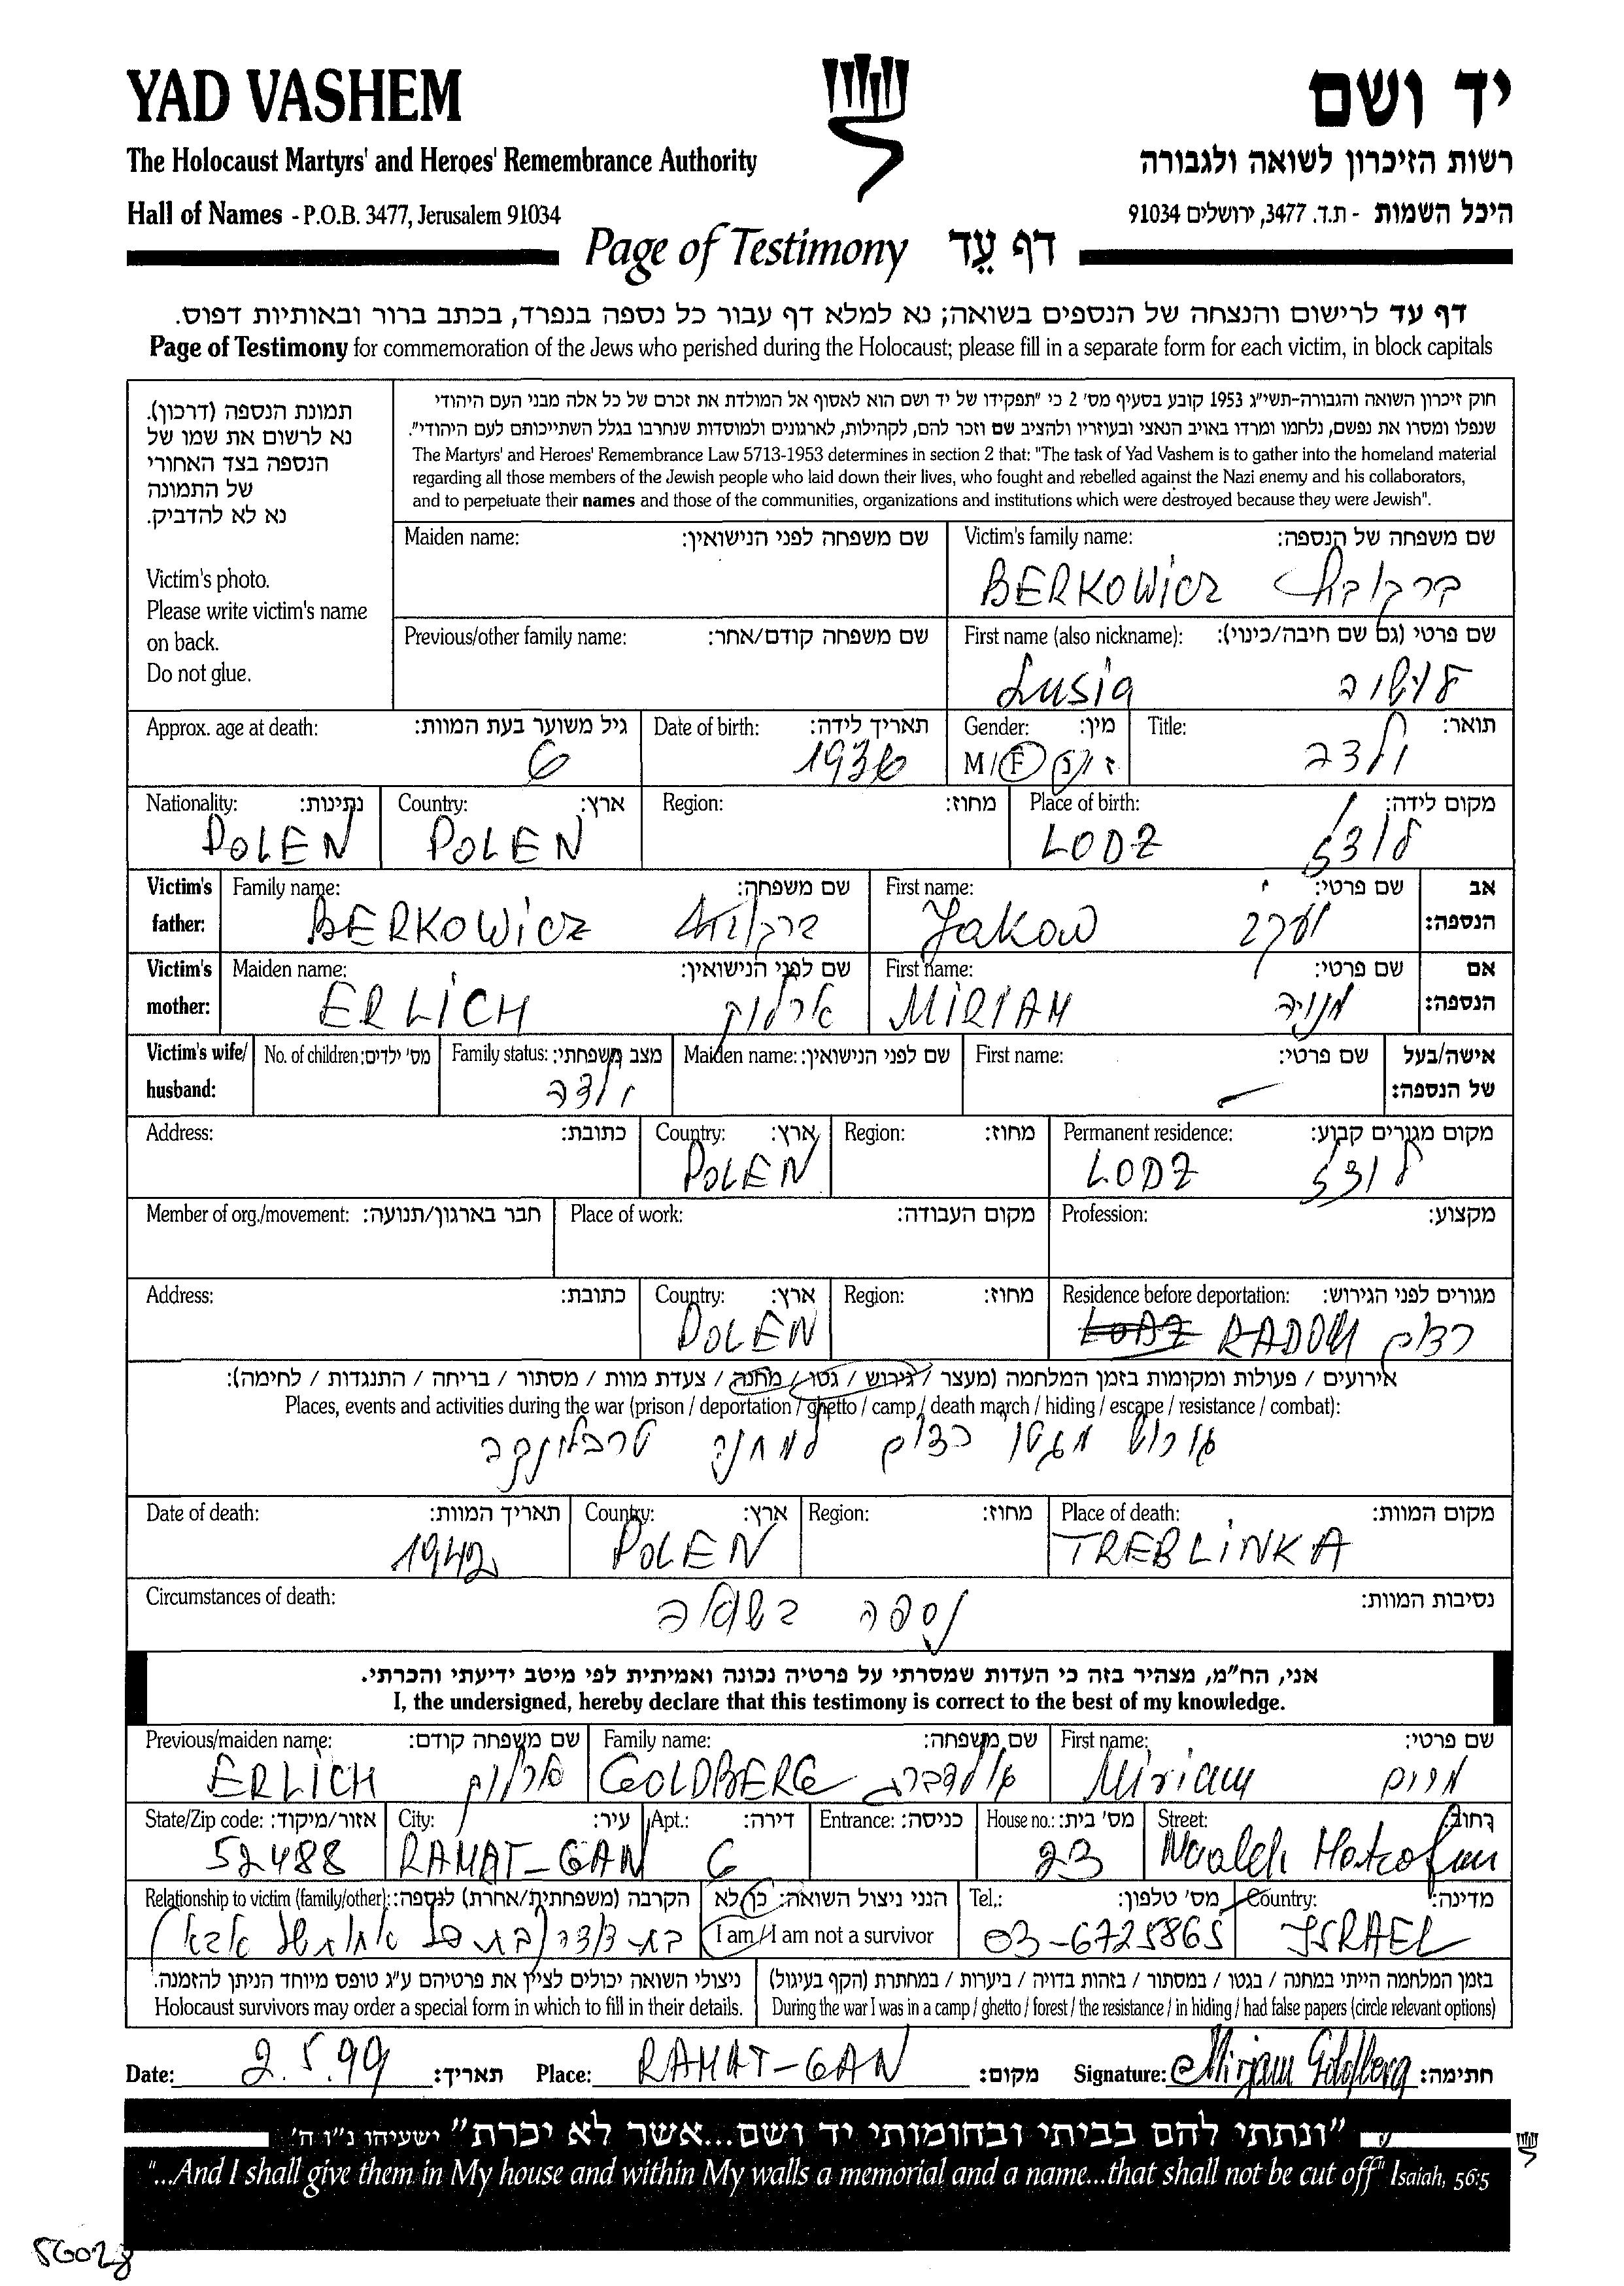 YAD VASHEM
יד ושם
The Holocaust Martyrs' and Heroes' Remembrance Authority
רשות הזיכרון לשואה ולגבורה
Hall of Names - P.O.B. 3477, Jerusalem 91034
היכל השמות - ת.ד. 3477, ירושלים 91034
Page of Testimony דף עֵד
דף עד לרישום והנצחה של הנספים בשואה; נא למלא דף עבור כל נספה בנפרד, בכתב ברור ובאותיות דפוס.
Page of Testimony for commemoration of the Jews who perished during the Holocaust; please fill in a separate form for each victim, in block capitals
תמונת הנספה (דרכון).
נא לרשום את שמו של
הנספה בצד האחורי
של התמונה
נא לא להדביק.
Victim's photo.
Please write victim's name
on back.
Do not glue.
חוק זיכרון השואה והגבורה-תשי״ג 1953 קובע בסעיף מס׳ 2 כי "תפקידו של יד ושם הוא לאסוף אל המולדת את זכרם של כל אלה מבני העם היהודי
שנפלו ומסרו את נפשם, נלחמו ומרדו באויב הנאצי ובעוזריו ולהציב שם וזכר להם, לקהילות, לארגונים ולמוסדות שנחרבו בגלל השתייכותם לעם היהודי".
The Martyrs' and Heroes' Remembrance Law 5713-1953 determines in section 2 that: "The task of Yad Vashem is to gather into the homeland material
regarding all those members of the Jewish people who laid down their lives, who fought and rebelled against the Nazi enemy and his collaborators,
and to perpetuate their names and those of the communities, organizations and institutions which were destroyed because they were Jewish".
Maiden name: שם משפחה לפני הנישואין:
Victim's family name: שם משפחה של הנספה:
BERKOWicz ברקוביץ
Previous/other family name: שם משפחה קודם/אחר:
First name (also nickname): שם פרטי (גם שם חיבה/כינוי):
Lusia לושיה
Approx. age at death: גיל משוער בעת המוות:
6
Date of birth: תאריך לידה:
1936
Gender: מין:
M / F ז / נ
Title: תואר:
ילדה
Nationality: נתינות:
POLEN
Country: ארץ:
POLEN
Region: מחוז:
Place of birth: מקום לידה:
LODZ לודז
Victim's father:
Family name: שם משפחה:
BERKOWicz ברקוביץ
First name: שם פרטי:
Jakow יעקב
אב הנספה:
Victim's mother:
Maiden name: שם לפני הנישואין:
ERLiCH ארליך
First name: שם פרטי:
MiRIAM מניה
אם הנספה:
Victim's wife/ husband:
No. of children: מס׳ ילדים:
Family status: מצב משפחתי:
ילדה
Maiden name: שם לפני הנישואין:
First name: שם פרטי:
אישה/בעל של הנספה:
Address: כתובת:
Country: ארץ:
POLEN
Region: מחוז:
Permanent residence: מקום מגורים קבוע:
LODZ לודז
Member of org./movement: חבר בארגון/תנועה:
Place of work: מקום העבודה:
Profession: מקצוע:
Address: כתובת:
Country: ארץ:
POLEN
Region: מחוז:
Residence before deportation: מגורים לפני הגירוש:
LODZ RADOM רדום
אירועים / פעולות ומקומות בזמן המלחמה (מעצר / גירוש / גטו / מחנה / צעדת מוות / מסתור / בריחה / התנגדות / לחימה):
Places, events and activities during the war (prison / deportation / ghetto / camp / death march / hiding / escape / resistance / combat):
גורש מגטו רדום למחנה טרבלינקה
Date of death: תאריך המוות:
1942
Country: ארץ:
POLEN
Region: מחוז:
Place of death: מקום המוות:
TREBLiNKA
Circumstances of death: נסיבות המוות:
נספה בשואה
אני, הח״מ, מצהיר בזה כי העדות שמסרתי על פרטיה נכונה ואמיתית לפי מיטב ידיעתי והכרתי.
I, the undersigned, hereby declare that this testimony is correct to the best of my knowledge.
Previous/maiden name: שם משפחה קודם:
ERLiCH ארליך
Family name: שם משפחה:
GOLDBERG גולדברג
First name: שם פרטי:
Miriam מרים
State/Zip code: אזור/מיקוד:
52488
City: עיר:
RAMAT-GAN
Apt.: דירה:
6
Entrance: כניסה:
House no.: מס׳ בית:
23
Street: רחוב:
Maaleh Hatzofim
Relationship to victim (family/other): הקרבה (משפחתית/אחרת) לנספה:
בת דודה (בת של אחות של אבא)
הנני ניצול השואה: כן/לא
I am / I am not a survivor
Tel.: מס׳ טלפון:
03-6725865
Country: מדינה:
ISRAEL
ניצולי השואה יכולים לציין את פרטיהם ע״ג טופס מיוחד הניתן להזמנה.
Holocaust survivors may order a special form in which to fill in their details.
בזמן המלחמה הייתי במחנה / בגטו / במסתור / בזהות בדויה / ביערות / במחתרת (הקף בעיגול)
During the war I was in a camp / ghetto / forest / the resistance / in hiding / had false papers (circle relevant options)
Date: 2.5.99 תאריך:
Place: RAMAT-GAN מקום:
Signature: Mirjam Goldberg חתימה:
"ונתתי להם בביתי ובחומותי יד ושם...אשר לא יכרת" ישעיהו נ״ו ה׳
"...And I shall give them in My house and within My walls a memorial and a name...that shall not be cut off" Isaiah, 56:5
56028